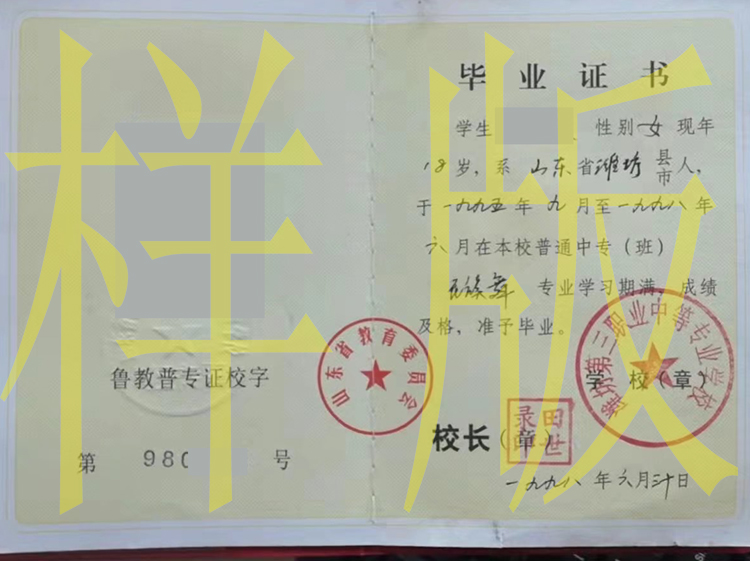 样版
鲁教普专证校字
第 980 号
山东省教育委员会
毕业证书
学生 性别 女 现年
18岁，系 山东省潍坊县市人，
于一九九五年九月至一九九八年
六月在本校普通中专（班）
民族舞 专业学习期满，成绩
及格，准予毕业。
潍坊第三职业中等专业学校
学 校（章）
校长（章）
田世录印
一九九八年六月三十日